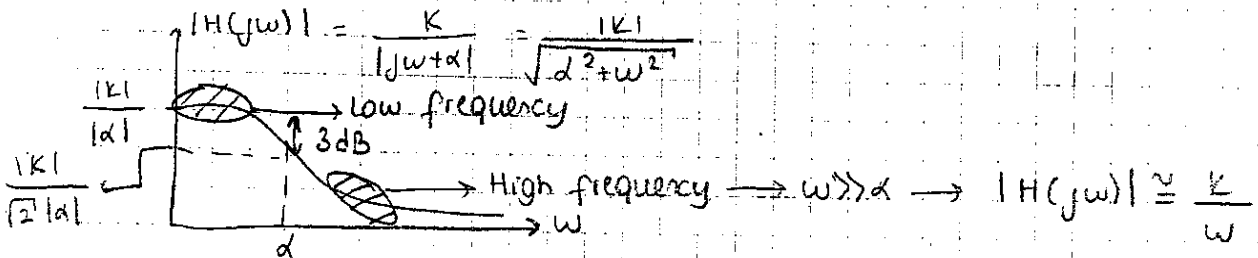 |H(jω)| = K / |jω+α| = |K| / √(α²+ω²)
|K| / |α|
Low frequency
3dB
|K| / (√2 |α|)
High frequency → ω>>α → |H(jω)| ≅ K / ω
ω
α